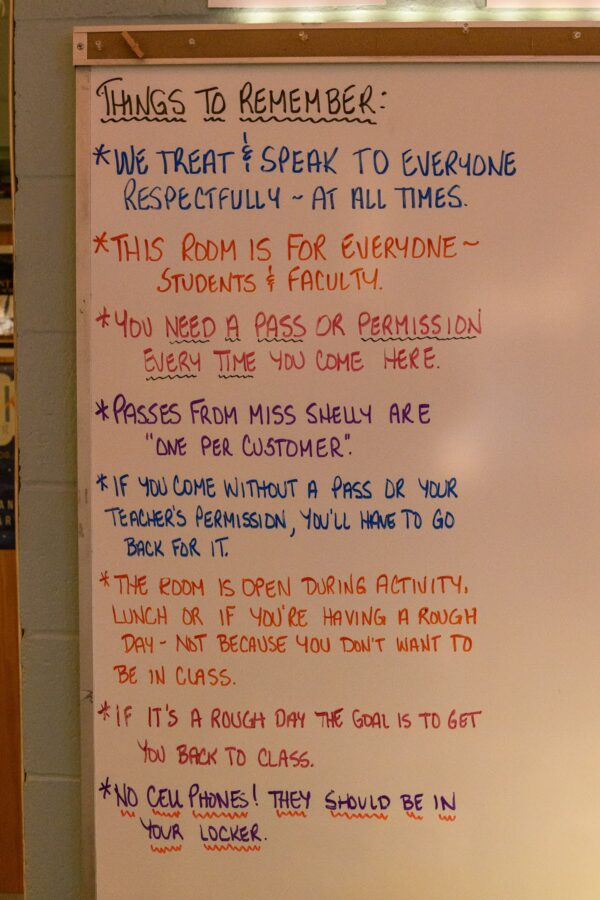 THINGS TO REMEMBER:
*WE TREAT & SPEAK TO EVERYONE
RESPECTFULLY ~ AT ALL TIMES.
*THIS ROOM IS FOR EVERYONE~
STUDENTS & FACULTY.
*YOU NEED A PASS OR PERMISSION
EVERY TIME YOU COME HERE.
*PASSES FROM MISS SHELLY ARE
"ONE PER CUSTOMER".
*IF YOU COME WITHOUT A PASS OR YOUR
TEACHER'S PERMISSION, YOU'LL HAVE TO GO
BACK FOR IT.
*THE ROOM IS OPEN DURING ACTIVITY,
LUNCH OR IF YOU'RE HAVING A ROUGH
DAY - NOT BECAUSE YOU DON'T WANT TO
BE IN CLASS.
*IF IT'S A ROUGH DAY THE GOAL IS TO GET
YOU BACK TO CLASS.
*NO CELL PHONES! THEY SHOULD BE IN
YOUR LOCKER.